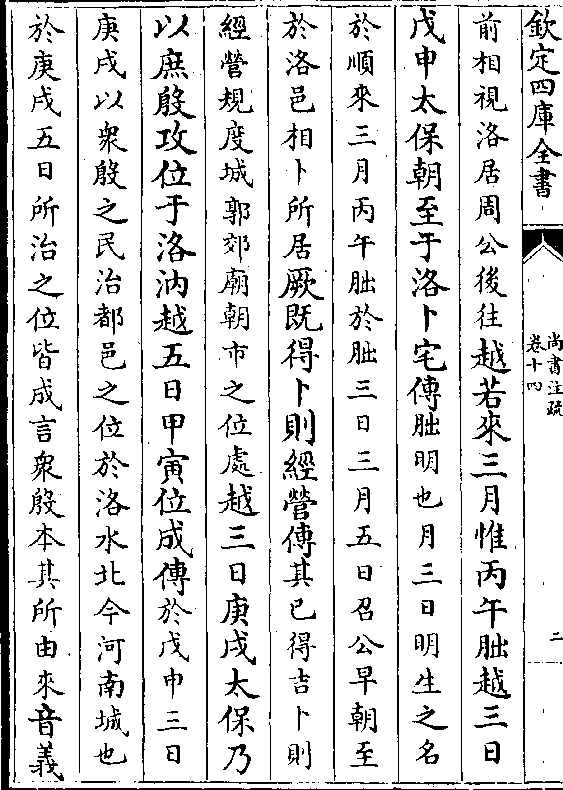 欽定四庫全書
尚書注疏
卷十四
二
前相視洛居周公後往越若來三月惟丙午朏越三日
戊申太保朝至于洛卜宅傳朏明也月三日明生之名
於順來三月丙午朏於朏三日三月五日召公早朝至
於洛邑相卜所居厥既得卜則經營傳其已得吉卜則
經營規度城郭郊廟朝市之位處越三日庚戌太保乃
以庶殷攻位于洛汭越五日甲寅位成傳於戊申三日
庚戌以衆殷之民治都邑之位於洛水北今河南城也
於庚戌五日所治之位皆成言衆殷本其所由來音義